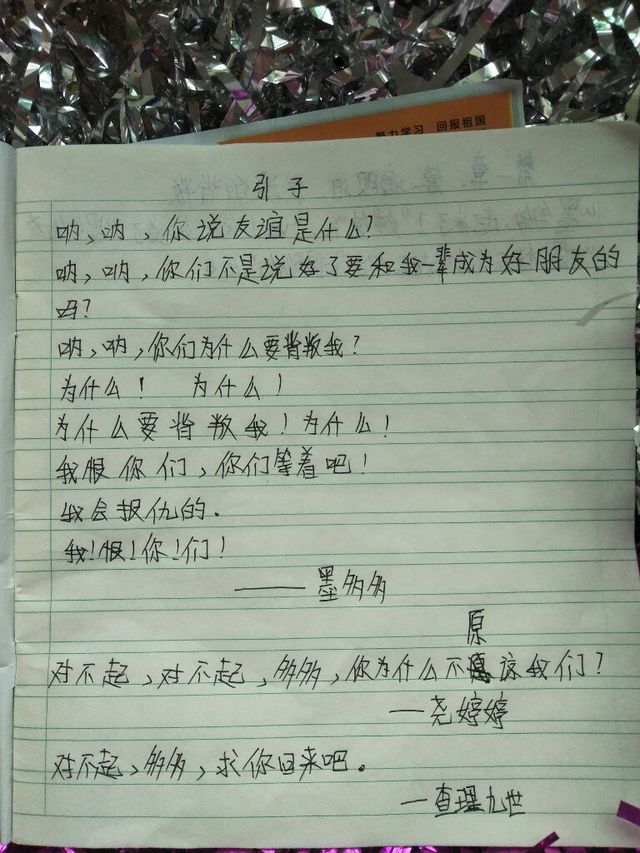 努力学习 回报祖国
引子
呐,呐,你说友谊是什么?
呐,呐,你们不是说好了要和我一辈成为好朋友的
吗?
呐,呐,你们为什么要背叛我?
为什么! 为什么!
为什么要背叛我!为什么!
我恨你们,你们等着吧!
我会报仇的.
我!恨!你!们!
——墨多多
原
对不起,对不起,多多,你为什么不谅我们?
—尧婷婷
对不起,多多,求你回来吧。
—查理九世